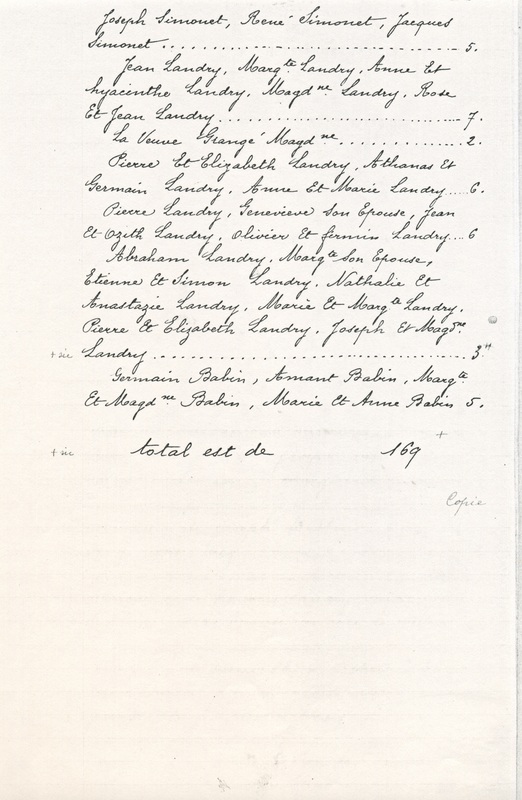 Joseph Simonet, René Simonet, Jacques
Simonet ........................................ 5.
Jean Landry, Margte Landry, Anne Et
hyacinthe Landry, Magdne Landry, Rose
Et Jean Landry ................................ 7.
La Veuve Grangé Magdne ............. 2.
Pierre Et Elizabeth Landry, Athanas Et
Germain Landry, Anne Et Marie Landry .... 6.
Pierre Landry, Genevieve Son Epouse, Jean
Et Ozith Landry, Olivier Et firmin Landry... 6
Abraham Landry, Margte Son Epouse,
Etienne Et Simon Landry, Nathalie Et
Anastazie Landry, Marie Et Margte Landry,
Pierre Et Elizabeth Landry, Joseph Et Magdne
+ sic Landry ........................................ 3+
Germain Babin, Amant Babin, Margte
Et Magdne Babin, Marie Et Anne Babin 5.
+ sic total est de 169 +
Copie